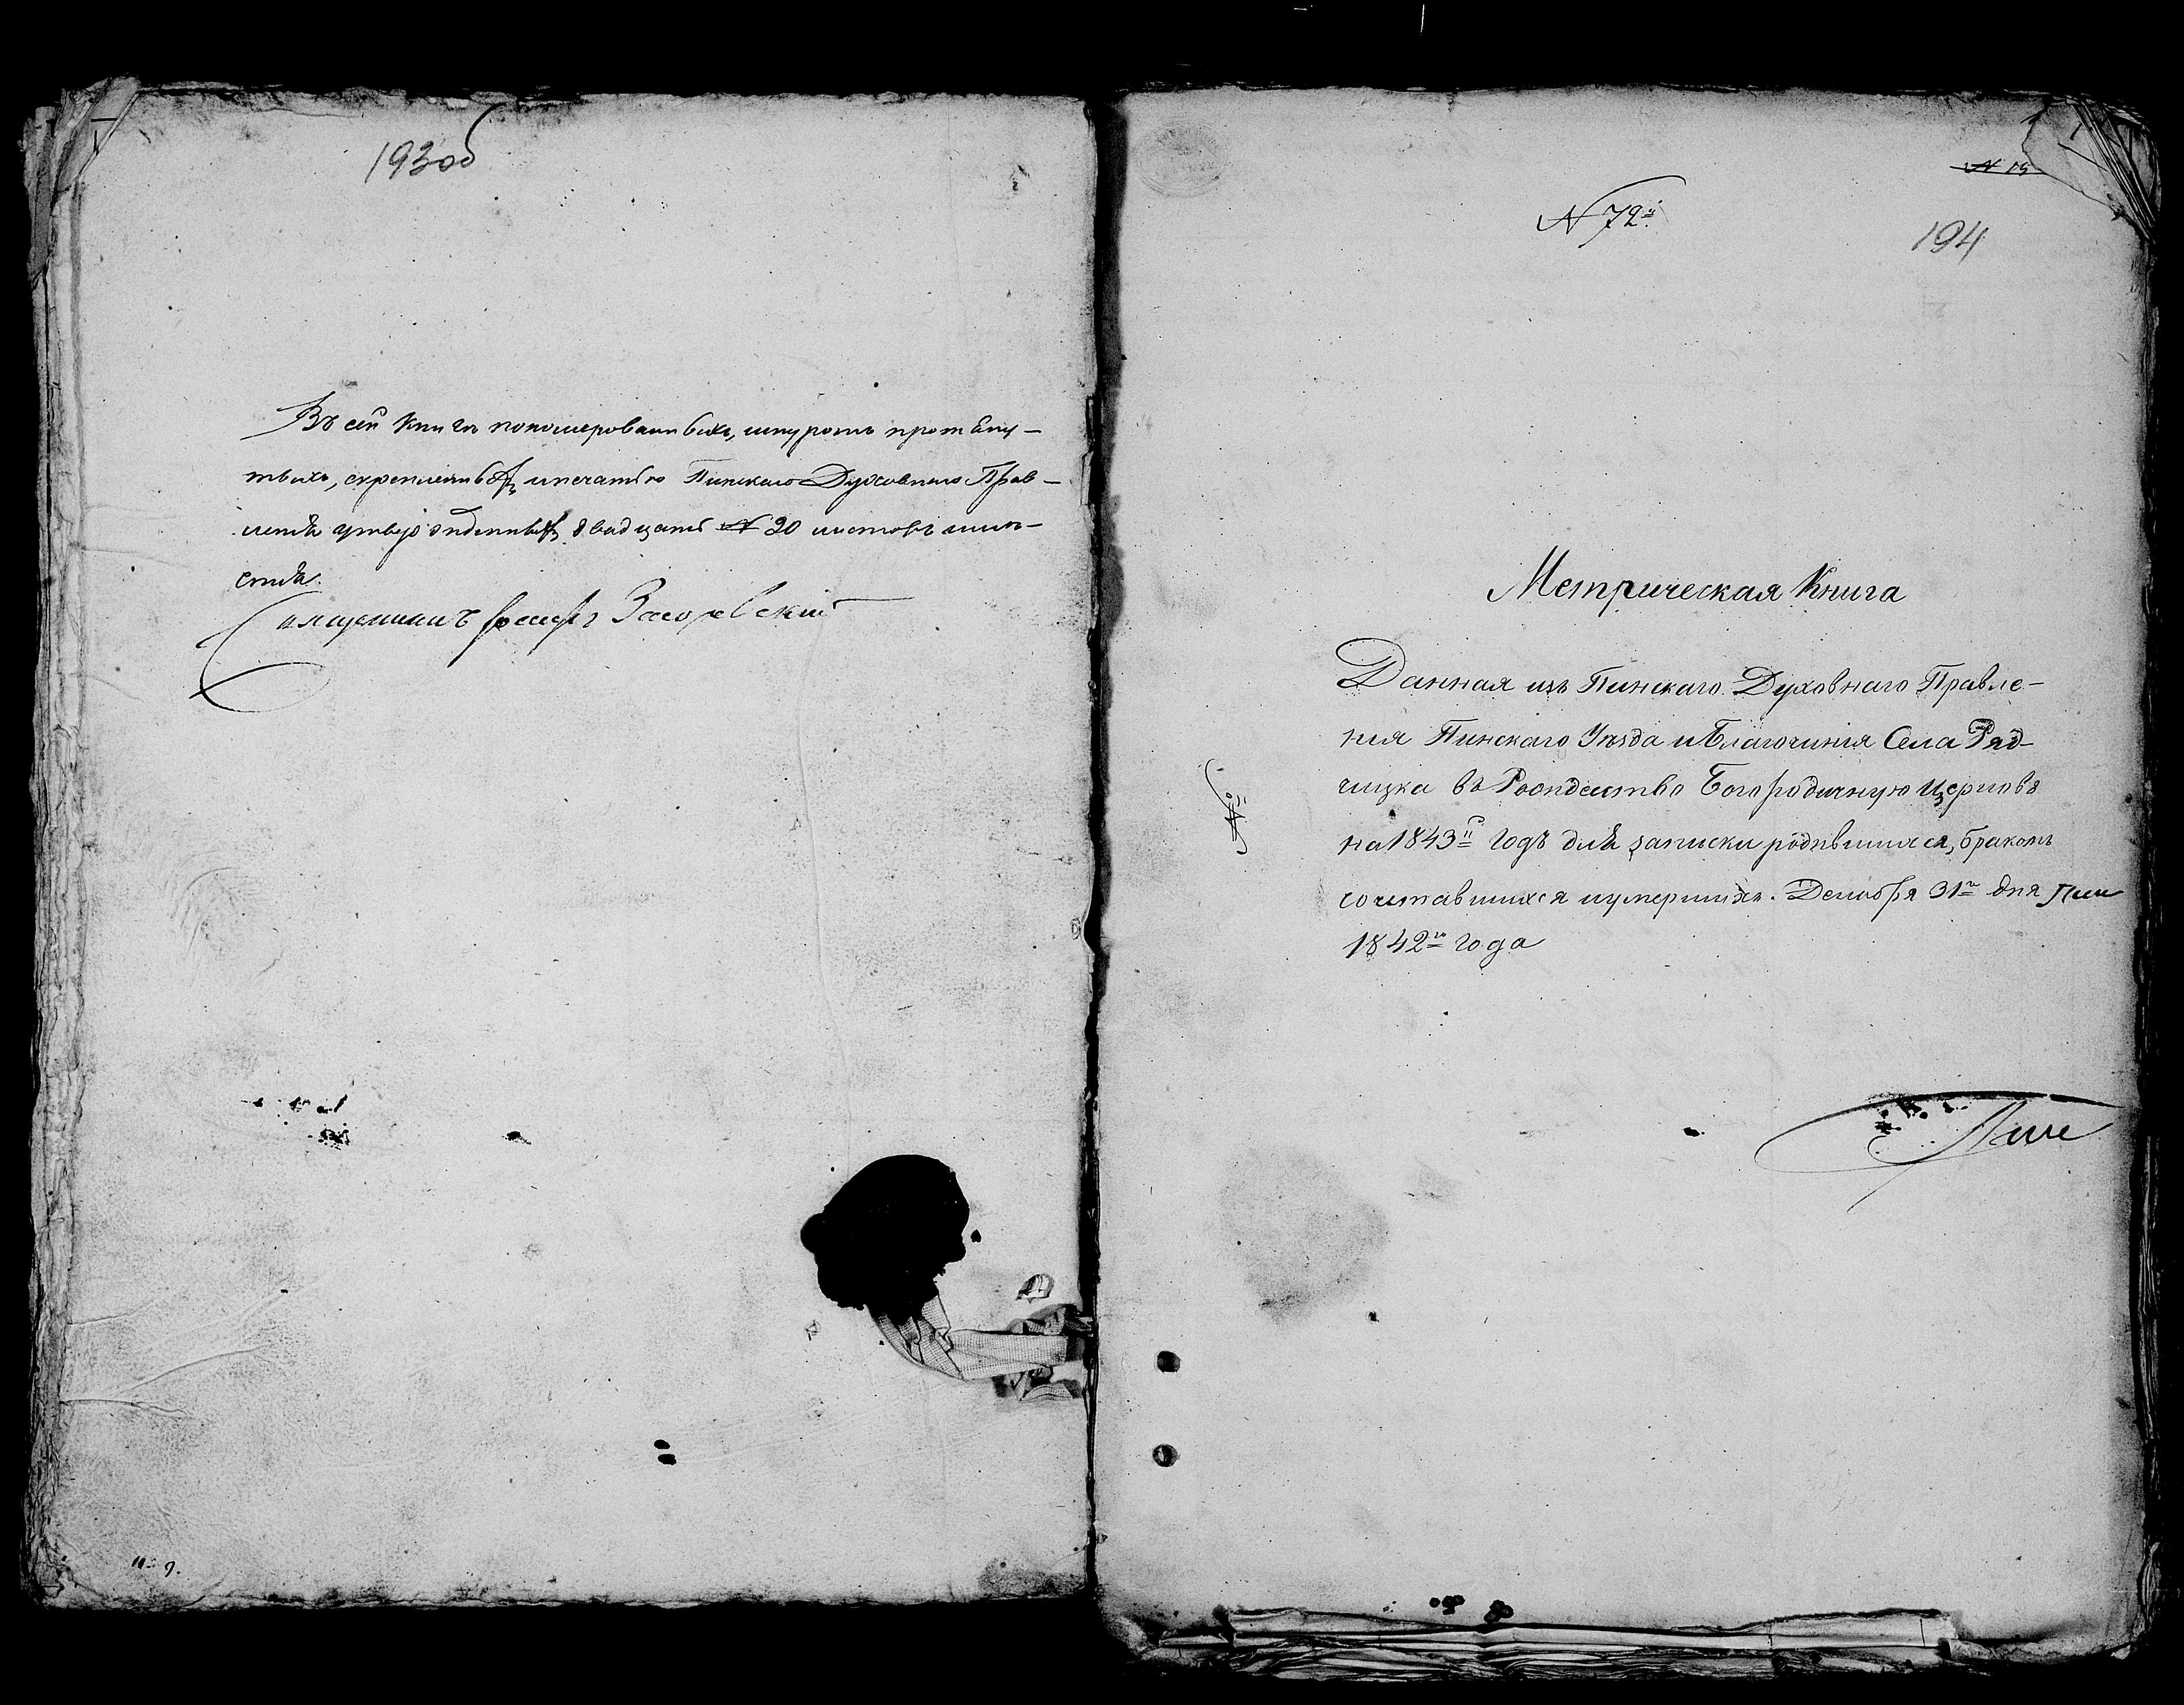 193об
Въ сей книгѣ пономерованныхъ, шнуромъ протяну-
тыхъ, скрепленныхъ и печатью Пинскаго Духовнаго Прав-
ленія утвержденныхъ двадцать № 20 листовъ имѣ-
ется.
Священникъ Іосифъ
№ 72й
194
Метрическая Книга
Данная изъ Пинскаго Духовнаго Правле-
нія Пинскаго Уѣзда и Благочинія Села Ряд-
чицка въ Рождество Богородичную Церковь
на 1843й годъ для записки родившихся, бракомъ
сочетавшихся и умершихъ. Декабря 31го дня
1842го года